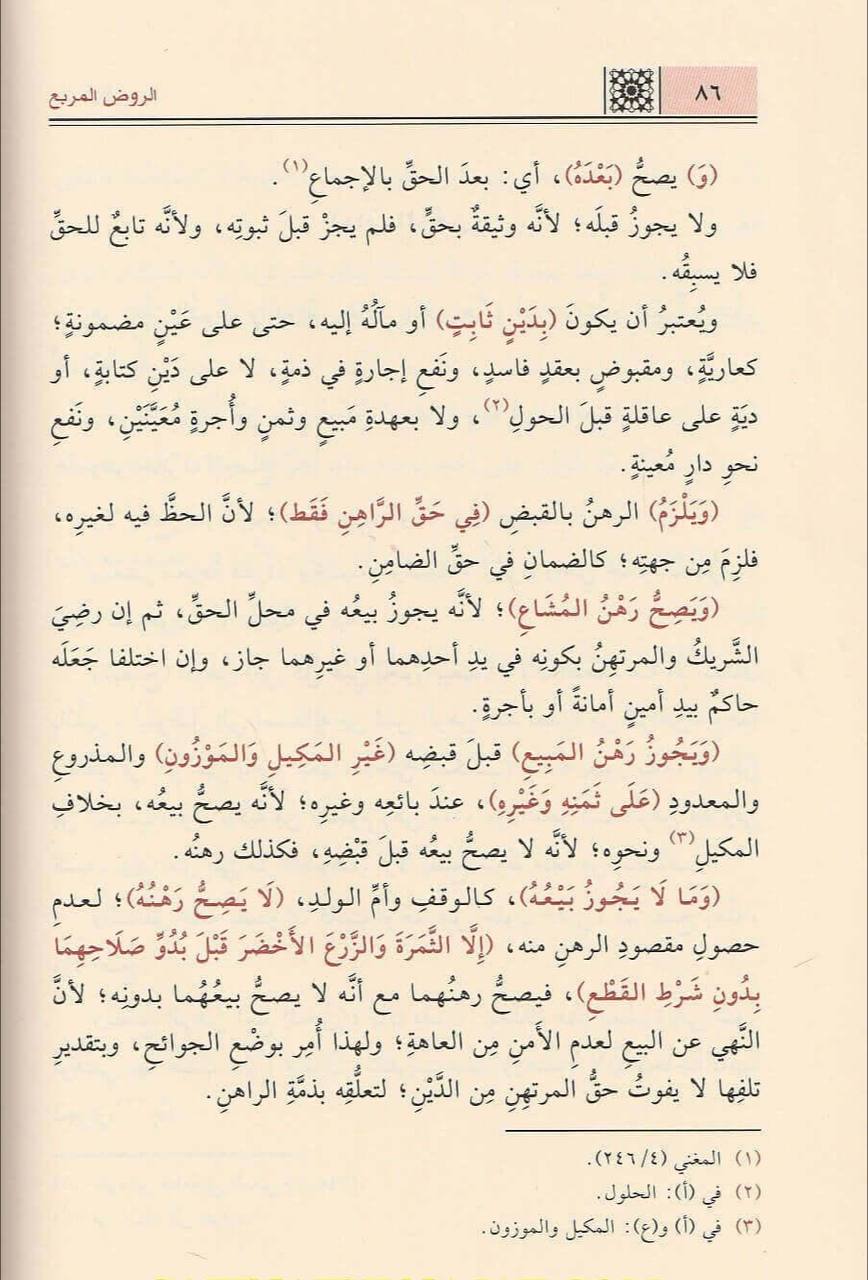 ٨٦
الروض المربع
(وَ) يصحُّ (بَعْدَهُ)، أي: بعدَ الحقِّ بالإجماعِ(١).
ولا يجوزُ قبلَه؛ لأنَّه وثيقةٌ بحقٍّ، فلم يجزْ قبلَ ثبوتِه، ولأنَّه تابعٌ للحقِّ
فلا يسبِقُه.
ويُعتبرُ أن يكونَ (بِدَيْنٍ ثَابِتٍ) أو مآلُهُ إليه، حتى على عَيْنٍ مضمونةٍ؛
كعاريَّةٍ، ومقبوضٍ بعقدٍ فاسدٍ، ونَفعِ إجارةٍ في ذمةٍ، لا على دَيْنِ كتابةٍ، أو
ديَةٍ على عاقلةٍ قبلَ الحولِ(٢)، ولا بعهدةِ مَبيعٍ وثمنٍ وأُجرةٍ مُعَيَّنَيْنِ، ونَفعِ
نحوِ دارٍ مُعينةٍ.
(وَيَلْزَمُ) الرهنُ بالقبضِ (فِي حَقِّ الرَّاهِنِ فَقَط)؛ لأنَّ الحظَّ فيه لغيرِه،
فلزِمَ مِن جهتِه؛ كالضمانِ في حقِّ الضامنِ.
(وَيَصِحُّ رَهْنُ المُشَاعِ)؛ لأنَّه يجوزُ بيعُه في محلِّ الحقِّ، ثم إن رضِيَ
الشَّريكُ والمرتهِنُ بكونِه في يدِ أحدِهما أو غيرِهما جاز، وإن اختلفا جَعَلَه
حاكمٌ بيدِ أمينٍ أمانةً أو بأجرةٍ.
(وَيَجُوزُ رَهْنُ المَبِيعِ) قبلَ قبضِه (غَيْرِ المَكِيلِ وَالمَوْزُونِ) والمذروعِ
والمعدودِ (عَلَى ثَمَنِهِ وَغَيْرِهِ)، عندَ بائعِه وغيرِه؛ لأنَّه يصحُّ بيعُه، بخلافِ
المكيلِ(٣) ونحوِه؛ لأنَّه لا يصحُّ بيعُه قبلَ قبْضِهِ، فكذلك رهنُه.
(وَمَا لَا يَجُوزُ بَيْعُهُ)، كالوقفِ وأمِّ الولدِ، (لَا يَصِحُّ رَهْنُهُ)؛ لعدمِ
حصولِ مقصودِ الرهنِ منه، (إِلَّا الثَّمَرَةَ وَالزَّرْعَ الأَخْضَرَ قَبْلَ بُدُوِّ صَلَاحِهِمَا
بِدُونِ شَرْطِ القَطْعِ)، فيصحُّ رهنُهما مع أنَّه لا يصحُّ بيعُهُما بدونِه؛ لأنَّ
النَّهي عن البيعِ لعدمِ الأَمنِ مِن العاهةِ؛ ولهذا أُمِر بوضْعِ الجوائحِ، وبتقديرِ
تلفِها لا يفوتُ حقُّ المرتهِنِ مِن الدَّيْنِ؛ لتعلُّقِه بذمَّةِ الراهنِ.
(١) المغني (٤/ ٢٤٦).
(٢) في (أ): الحلول.
(٣) في (أ) و(ع): المكيل والموزون.